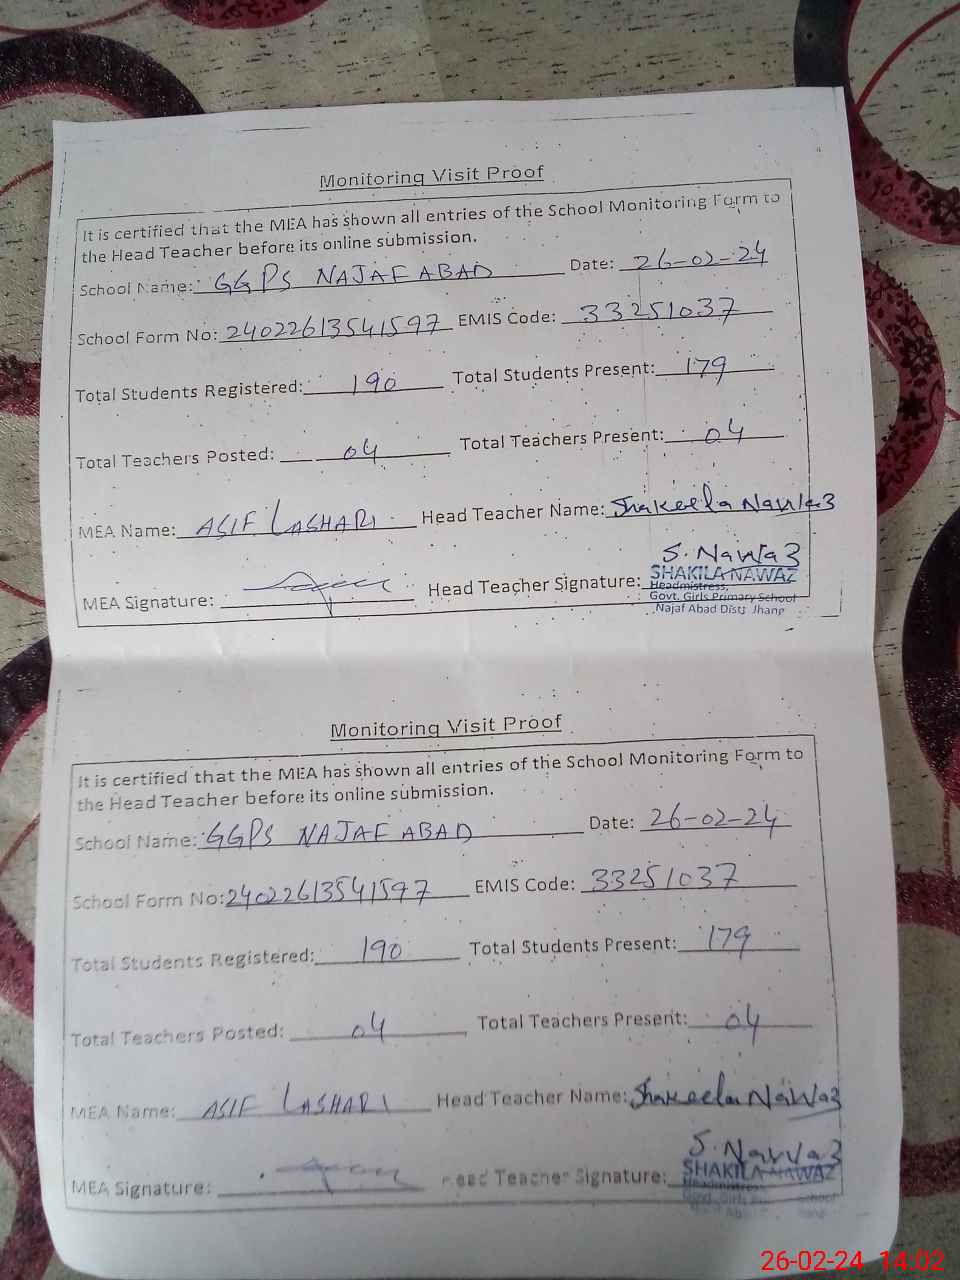 Monitoring Visit Proof
It is certified that the MEA has shown all entries of the School Monitoring Form to
the Head Teacher before its online submission.
School Name: GGPS NAJAF ABAD Date: 26-02-24
School Form No: 24022613541597 EMIS Code: 33251037
Total Students Registered: 190 Total Students Present: 179
Total Teachers Posted: 04 Total Teachers Present: 04
MEA Name: ASIF LASHARI Head Teacher Name: Shakeela Nawaz
S. Nawaz
MEA Signature: Head Teacher Signature: SHAKILA NAWAZ
Headmistress,
Govt. Girls Primary School
Najaf Abad Distt Jhang
Monitoring Visit Proof
It is certified that the MEA has shown all entries of the School Monitoring Form to
the Head Teacher before its online submission.
School Name: GGPS NAJAF ABAD Date: 26-02-24
School Form No: 24022613541597 EMIS Code: 33251037
Total Students Registered: 190 Total Students Present: 179
Total Teachers Posted: 04 Total Teachers Present: 04
MEA Name: ASIF LASHARI Head Teacher Name: Shakeela Nawaz
S. Nawaz
MEA Signature: Head Teacher Signature: SHAKILA NAWAZ
Headmistress
Govt. Girls School
26-02-24 14:02